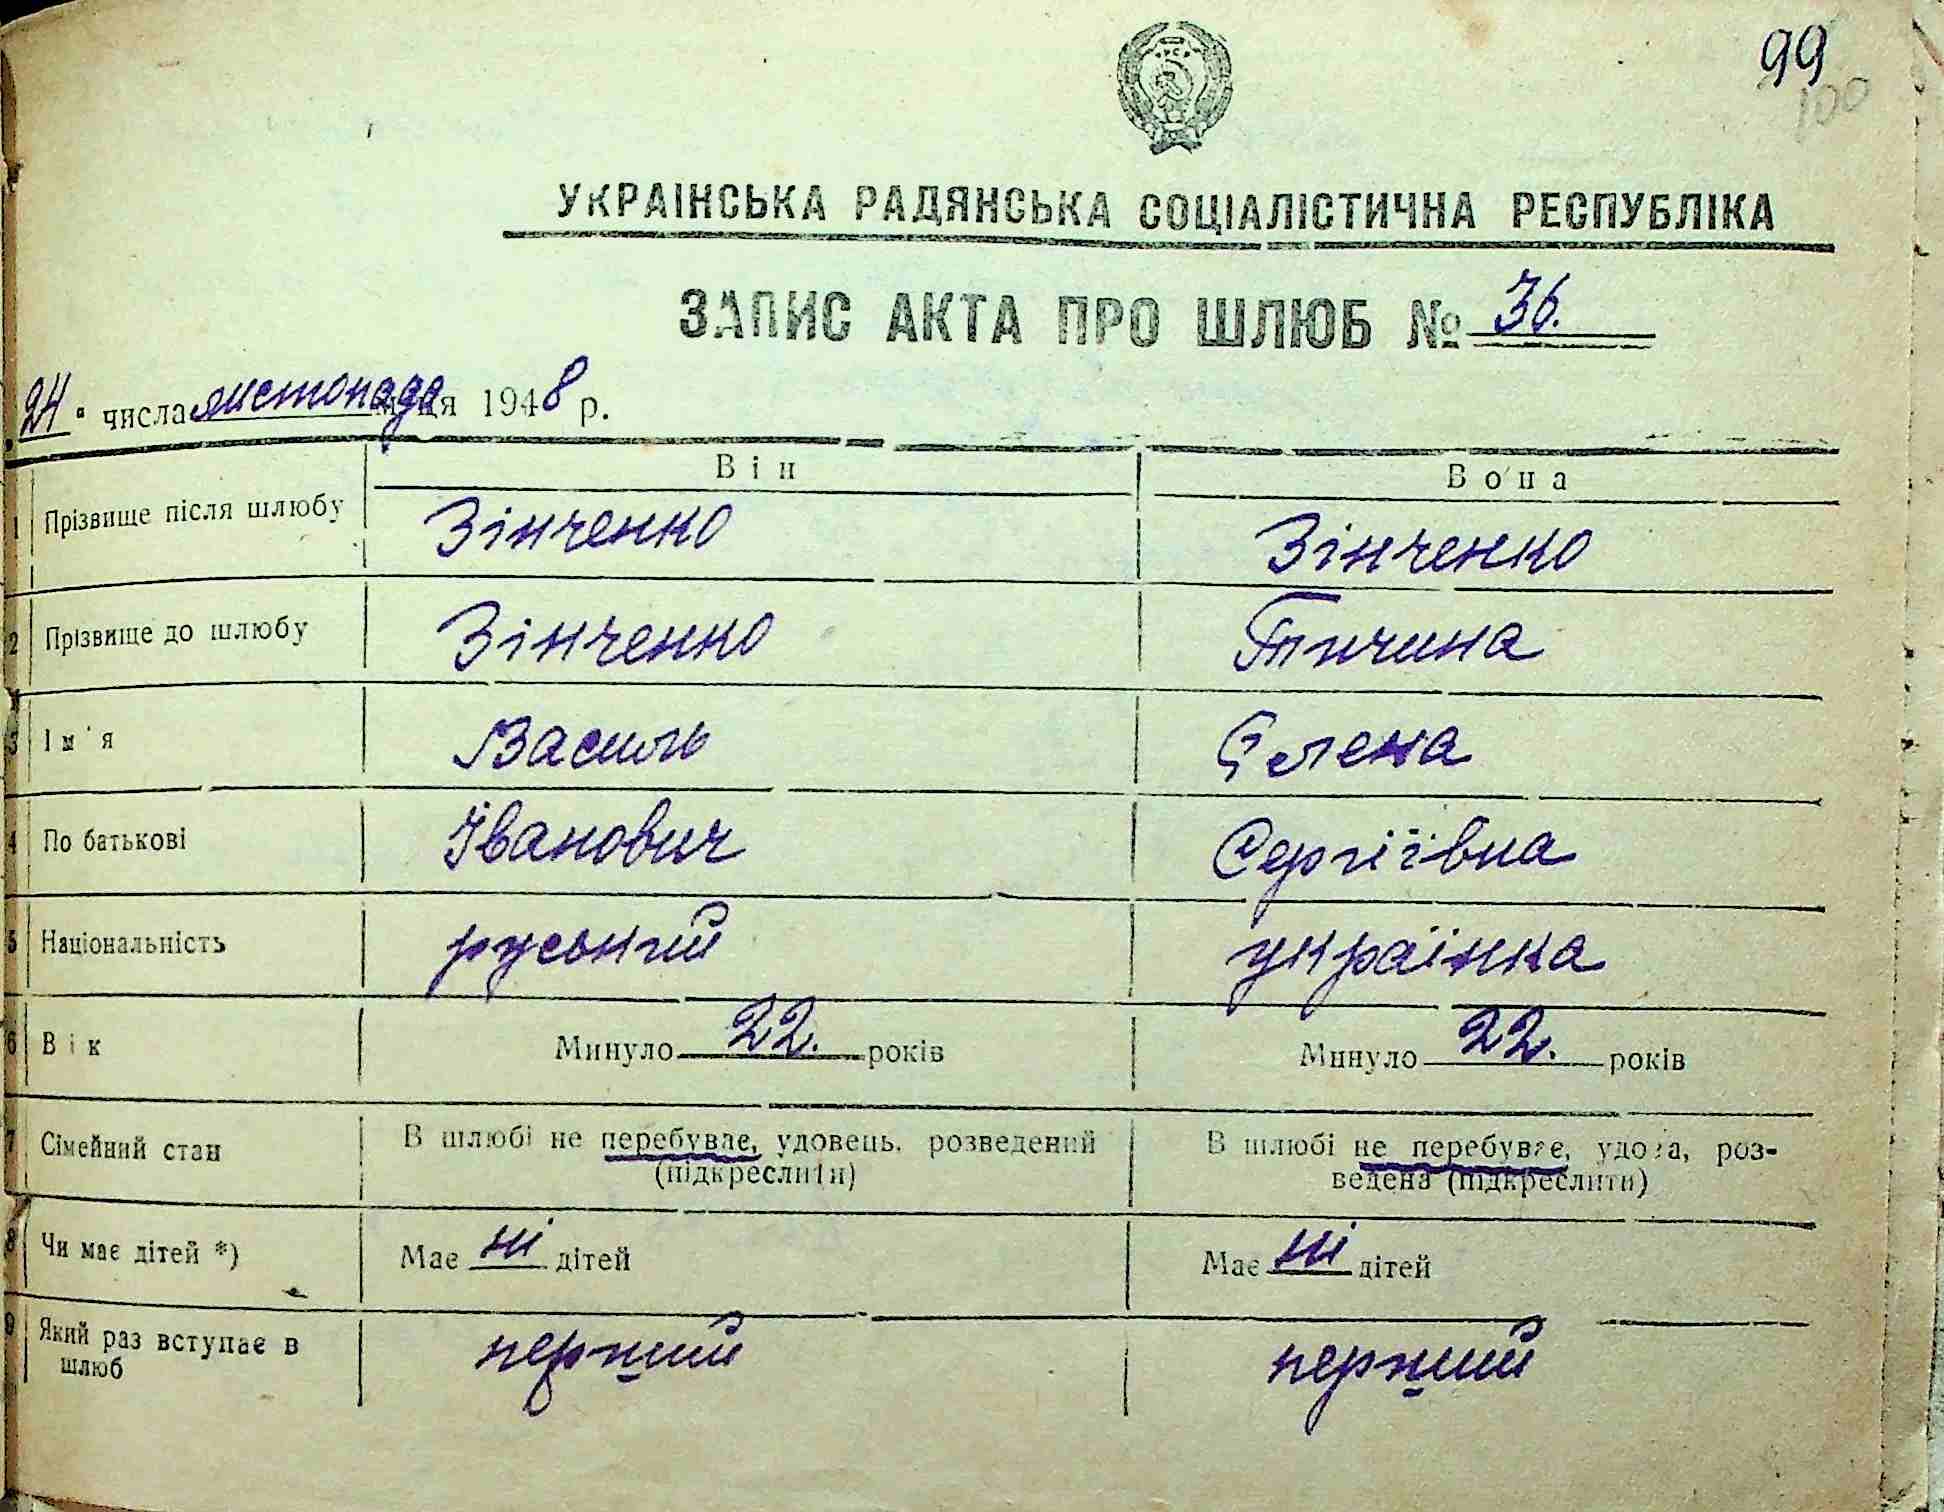 99
100
УРСР
УКРАЇНСЬКА РАДЯНСЬКА СОЦІАЛІСТИЧНА РЕСПУБЛІКА
ЗАПИС АКТА ПРО ШЛЮБ № 36.
24 числа листопада м-ця 1948 р.
Він Вона
1 Прізвище після шлюбу Зінченко Зінченко
2 Прізвище до шлюбу Зінченко Тичина
3 Ім'я Василь Єлена
4 По батькові Іванович Сергіївна
5 Національність руський українка
6 Вік Минуло 22. років Минуло 22. років
7 Сімейний стан В шлюбі не перебуває, удовець, розведений В шлюбі не перебуває, удова, роз-
(підкреслити) ведена (підкреслити)
8 Чи має дітей *) Має ні дітей Має ні дітей
9 Який раз вступає в перший перший
шлюб